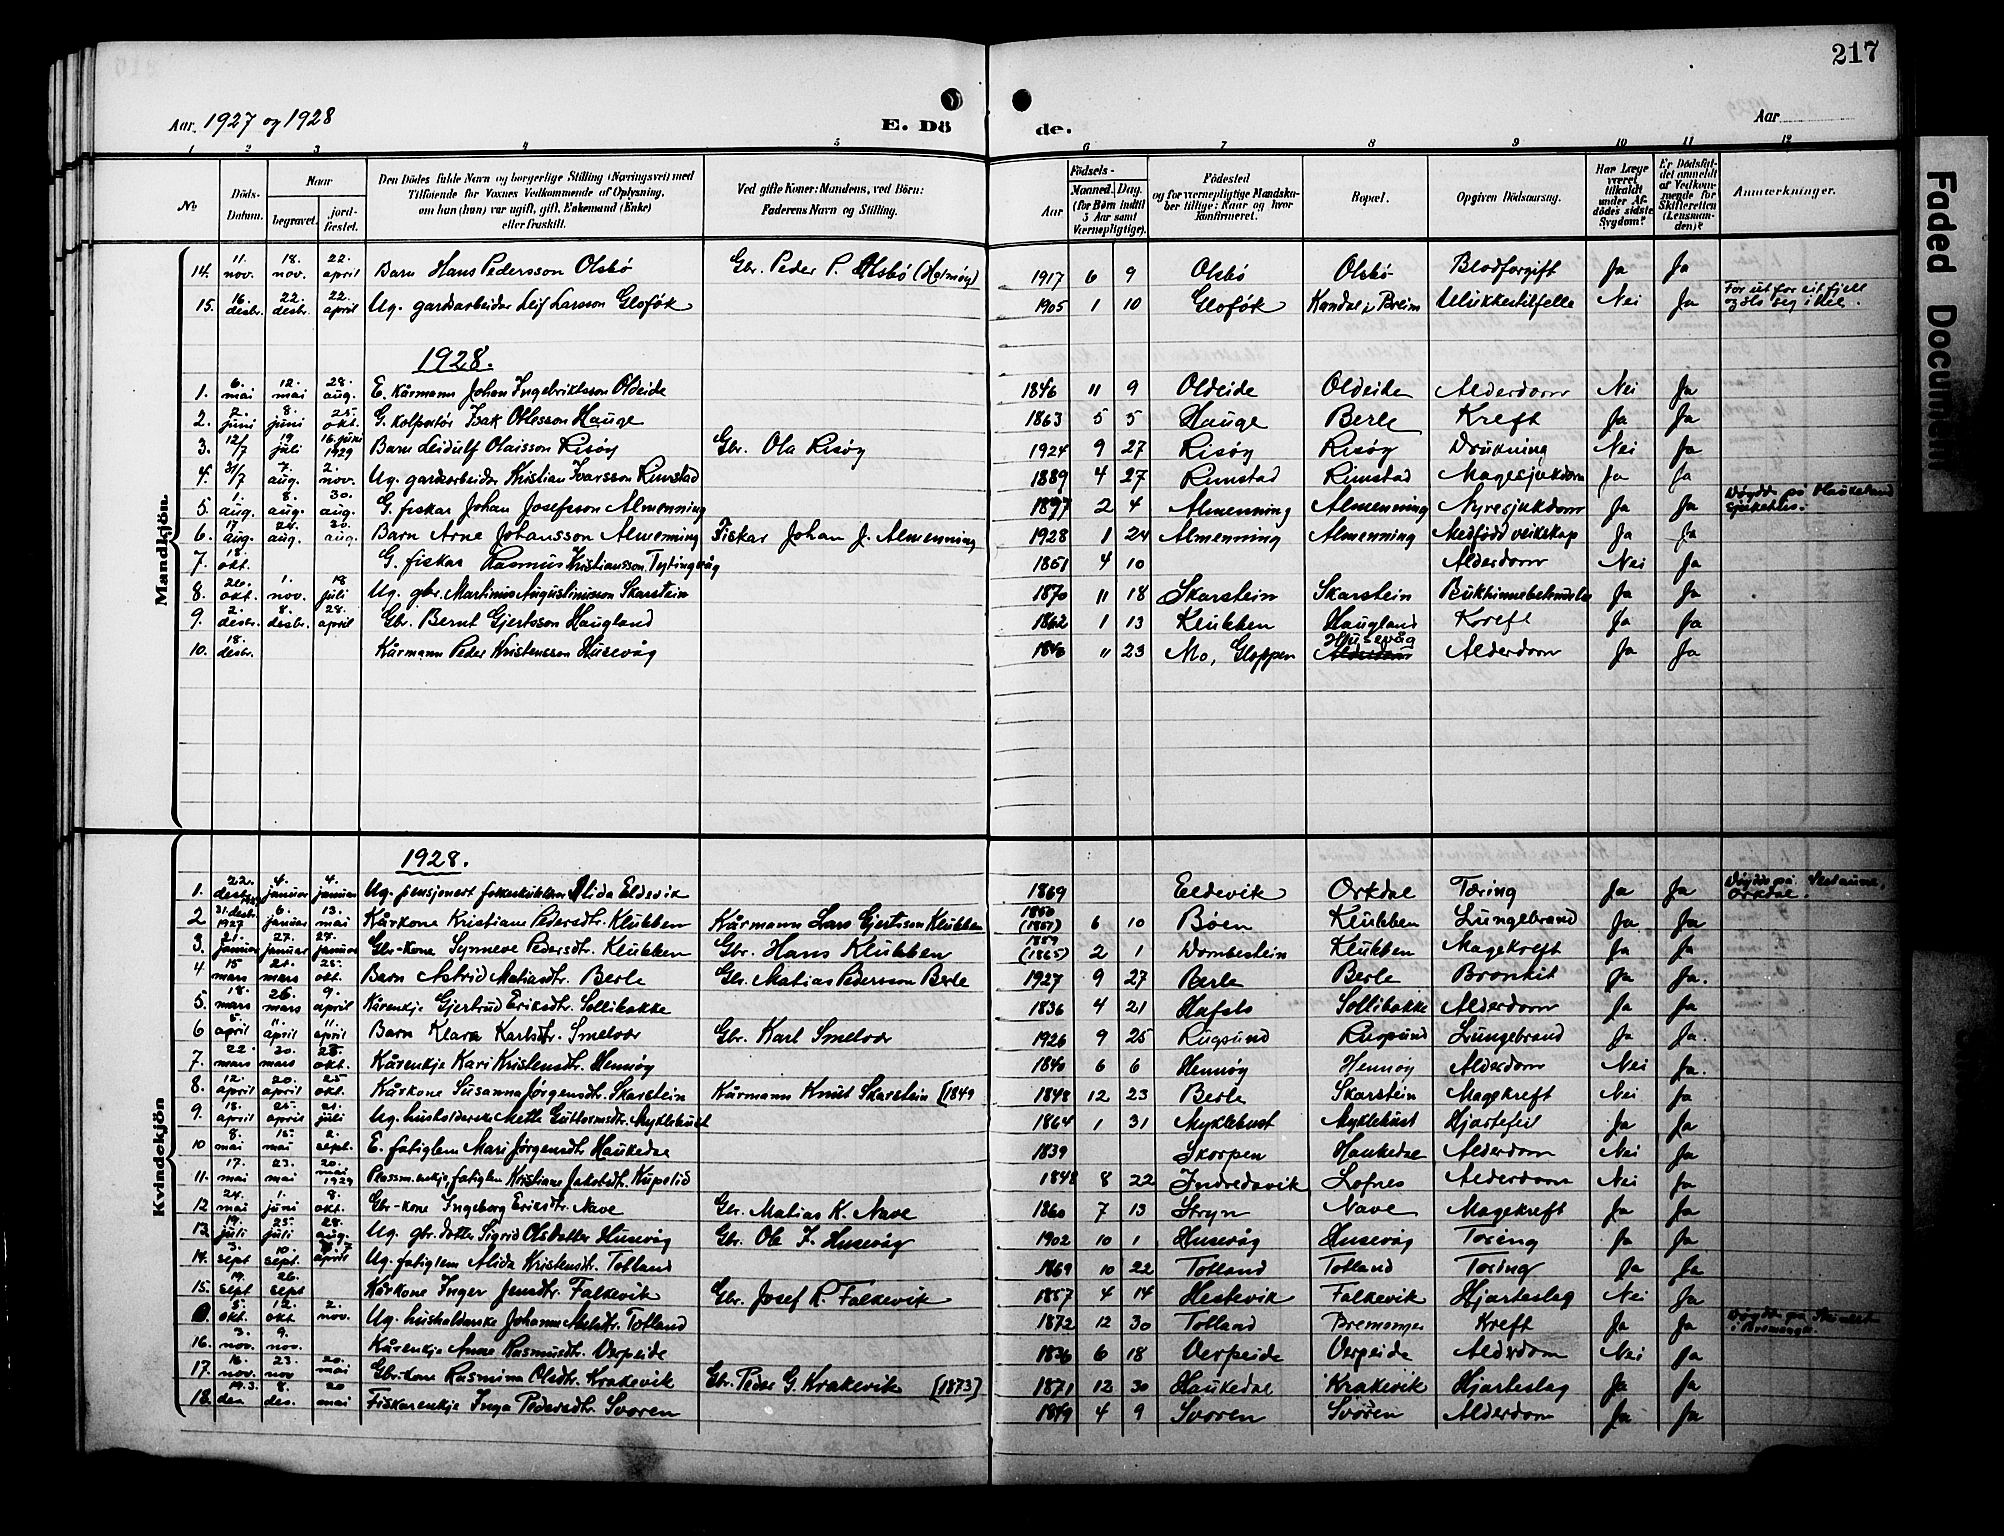 217
Aar 1927 og 1928 E. Dö de. Aar
1 2 3 4 5 6 7 8 9 10 11 12
№ Döds-Datum. Naar begravet. jord-fæstet. Den Dödes fulde Navn og borgerlige Stilling (Næringsvei) med Tilföiende for Voxnes Vedkommende af Oplysning, om han (hun) var ugift, gift, Enkemand (Enke) eller fraskilt. Ved gifte Koner: Mandens, ved Börn: Faderens Navn og Stilling. Födsels- Aar Maaned. Dag. (for Börn indtil 5 Aar samt Værnepligtige). Födested og for værnepligtige Mandskaber tillige: Naar og hvor konfirmeret. Bopæl. Opgiven Dödsaarsag. Har Læge været tilkaldt under Afdödes sidste Sygdom? Er Dödsfaldet anmeldt af Vedkommende for Skifteretten (Lensmanden)? Anmærkninger.
Mandkjön
14. 11. nov. 18. nov. 22. april Barn Hans Pedersson Olsbö Gbr. Peder P. Olsbö (Holmöy) 1917 6 9 Olsbö Olsbö Blodforgift Ja Ja
15. 16. desbr. 22. desbr. 22. april Ug. gardsarbeider Leif Larsson Glofök 1905 1 10 Glofök Kandal i Breim Ulukkestilfelle Nei Ja For ut for eit fjell og slo seg ihel.
1928.
1. 6. mai 12. mai 28. aug. E. Kårmann Johan Ingebriktsson Oldeide 1846 11 9 Oldeide Oldeide Alderdom Nei Ja
2. 2. juni 8. juni 25. okt. G. kolportör Isak Ottesson Hauge 1863 5 5 Hauge Berle Kreft Ja Ja
3. 12/7 19. juli 16. juni 1929 Barn Leidulf Olaisson Risöy Gbr. Ola Risöy 1924 9 27 Risöy Risöy Drukning Nei Ja
4. 31/7 7. aug. 2. nov. Ug. gardsarbeider Kristian Ivarsson Rimstad 1889 4 27 Rimstad Rimstad Magesjukdom Ja Ja
5. 1. aug. 8. aug. 30. aug. G. fiskar Johan Josefsson Almenning 1897 2 4 Almenning Almenning Nyresjukdom Ja Ja Döydde på Haukeland sjukehus.
6. 17. aug. 24. aug. 30. aug. Barn Arne Johansson Almenning Fiskar Johan J. Almenning 1928 1 24 Almenning Almenning Medfödd veikskap Ja Ja
7. 18. okt. G. fiskar Rasmus Kristiansson Tytingvåg 1851 4 10 Alderdom Nei Ja
8. 26. okt. 1. nov. 18 juli Ug. gbr. Martinus Augustinusson Skarstein 1870 11 18 Skarstein Skarstein Bukhinnebetendelse Ja Ja
9. 2. desbr. 8. desbr. 28. april Gbr. Bernt Gjertsson Haugland 1862 1 13 Klubben Haugland Kreft Ja Ja
10. 18. desbr. Kårmann Peder Kristensson Husevåg 1840 " 23 Mo, Gloppen Husevåg Alderdom Ja Ja
Kvindekjön
1928.
1. 22. desbr. 4. januar 4. januar Ug. pensjonert Alida Eldevik 1869 Eeldevik Orkdal Tæring Ja Ja Döydde på Orkdal.
2 31. desbr. 1927 6. januar 13. mai Kårkone Kristiane Pedersdtr. Klubben Kårmann Lars Gjertsson Klubben 1850 (1851) 6 10 Böen Klubben Lungebrand Ja Ja
3. 21. januar 27. januar 27. januar Gbr-kone Synneve Pedersdtr. Klubben Gbr. Hans Klubben 1859 (1865) 2 1 Dombestein Klubben Magekreft Ja Ja
4 15 mars 21. mars 25. okt. Barn Astrid Matiasdtr. Berle Gbr. Matias Pedersson Berle 1927 9 27 Berle Berle Bronkit Ja Ja.
5. 18. mars 26. mars 9. april Kårenkje Gjertrud Eriksdtr. Sollibakke 1836 4 21 Hafslo Sollibakke Alderdom Ja Ja
6 5. april 11. april 11. april Barn Klara Karlsdtr. Smelvær Gbr. Karl Smelvær 1926 9 25 Rugsund Rugsund Lungebrand Ja Ja.
7. 22. mars 30. mars 28. okt. Kårenkje Kari Kristensdtr. Hennöy 1840 6 6 Hennöy Hennöy Alderdom Nei Ja.
8. 12. april 20. april 25 okt. Kårkone Susanna Jörgensdtr. Skarstein Kårmann Knut Skarstein [1849 1848 12 23 Berle Skarstein Magekreft Nei Ja
9. 18. april 25. april 21. juli Ug. husholderske Mette Guttormsdtr. Myklebust 1864 1 31 Myklebust Myklebust Hjartefeil Ja Ja
10 8. mai 15. mai 2. sept. E. fatiglem Mari Jörgensdtr. Haukedal 1839 Skorpen Haukedal Alderdom Nei Ja
11. 17. mai 23. mai 20. mai 1929 Plassm.enkje, fatiglem Kristiane Jakobsdtr. Kupelid 1848 8 22 Indredavik Lofnes Alderdom Nei Ja
12 24. mai 1. juni 8. okt. Gbr-kone Ingeborg Eriksdtr. Nave Gbr. Matias K. Nave 1860 7 13 Stryn Nave Magekreft Ja Ja
13. 19. juli 25. juli 28. aug. Ug. gbr. dotter Sigrid Olsdotter Husevåg Gbr. Ole J. Husevåg 1902 10 1 Husevåg Husevåg Tæring Ja Ja
14. 3. sept 10. sept. april Ug. fatiglem Alida Kristensdtr. Totland 1869 10 22 Totland Totland Tæring Ja Ja
15. 19. sept 26. sept Kårkone Inger Jensdtr. Falkevik Gbr. Josef R. Falkevik 1857 4 14 Hestevik Falkevik Hjarteslag Nei Ja
5. okt. 12. okt 2. nov. Ug. husholderske Johanne Totland 1872 12 30 Totland Bremanger Kreft Ja Ja Döydde på i Bremanger
16. 3. nov. 9. nov. Kårenkje Anne Rasmusdtr. Verpeide 1836 6 18 Verpeide Verpeide Alderdom Nei Ja
17. 16. nov. 23. nov 20. mai Gbr.kone Rasmine Olsdtr. Krakevik Gbr. Peder G. Krakevik [1873] 1871 12 30 Haukedal Krakevik Hjarteslag Ja Ja
18. des. 8. des. 20 mai Fiskarenkje Inga Pedersdtr. Svoren 1849 4 9 Svoren Svören Alderdom Ja Ja
Faded Document